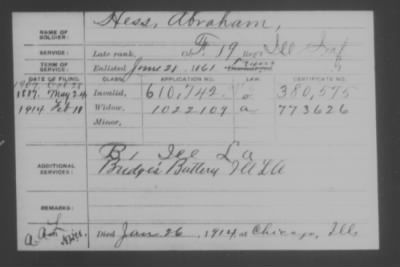 NAME OF SOLDIER: Hess, Abraham,
SERVICE: Late rank, Co. F 19 Reg't Ill Inf
TERM OF SERVICE: Enlisted June 28, 1861
DATE OF FILING. CLASS. APPLICATION NO. LAW. CERTIFICATE NO.
1887. May 24 Invalid, 610,742 380,575
1914 Feb 11 Widow, 1022109 a 773626
Minor,
ADDITIONAL SERVICES: B, Ill La
Bridge's Battery Ill LA
REMARKS:
Died Jan 26, 1914 at Chicago, Ill